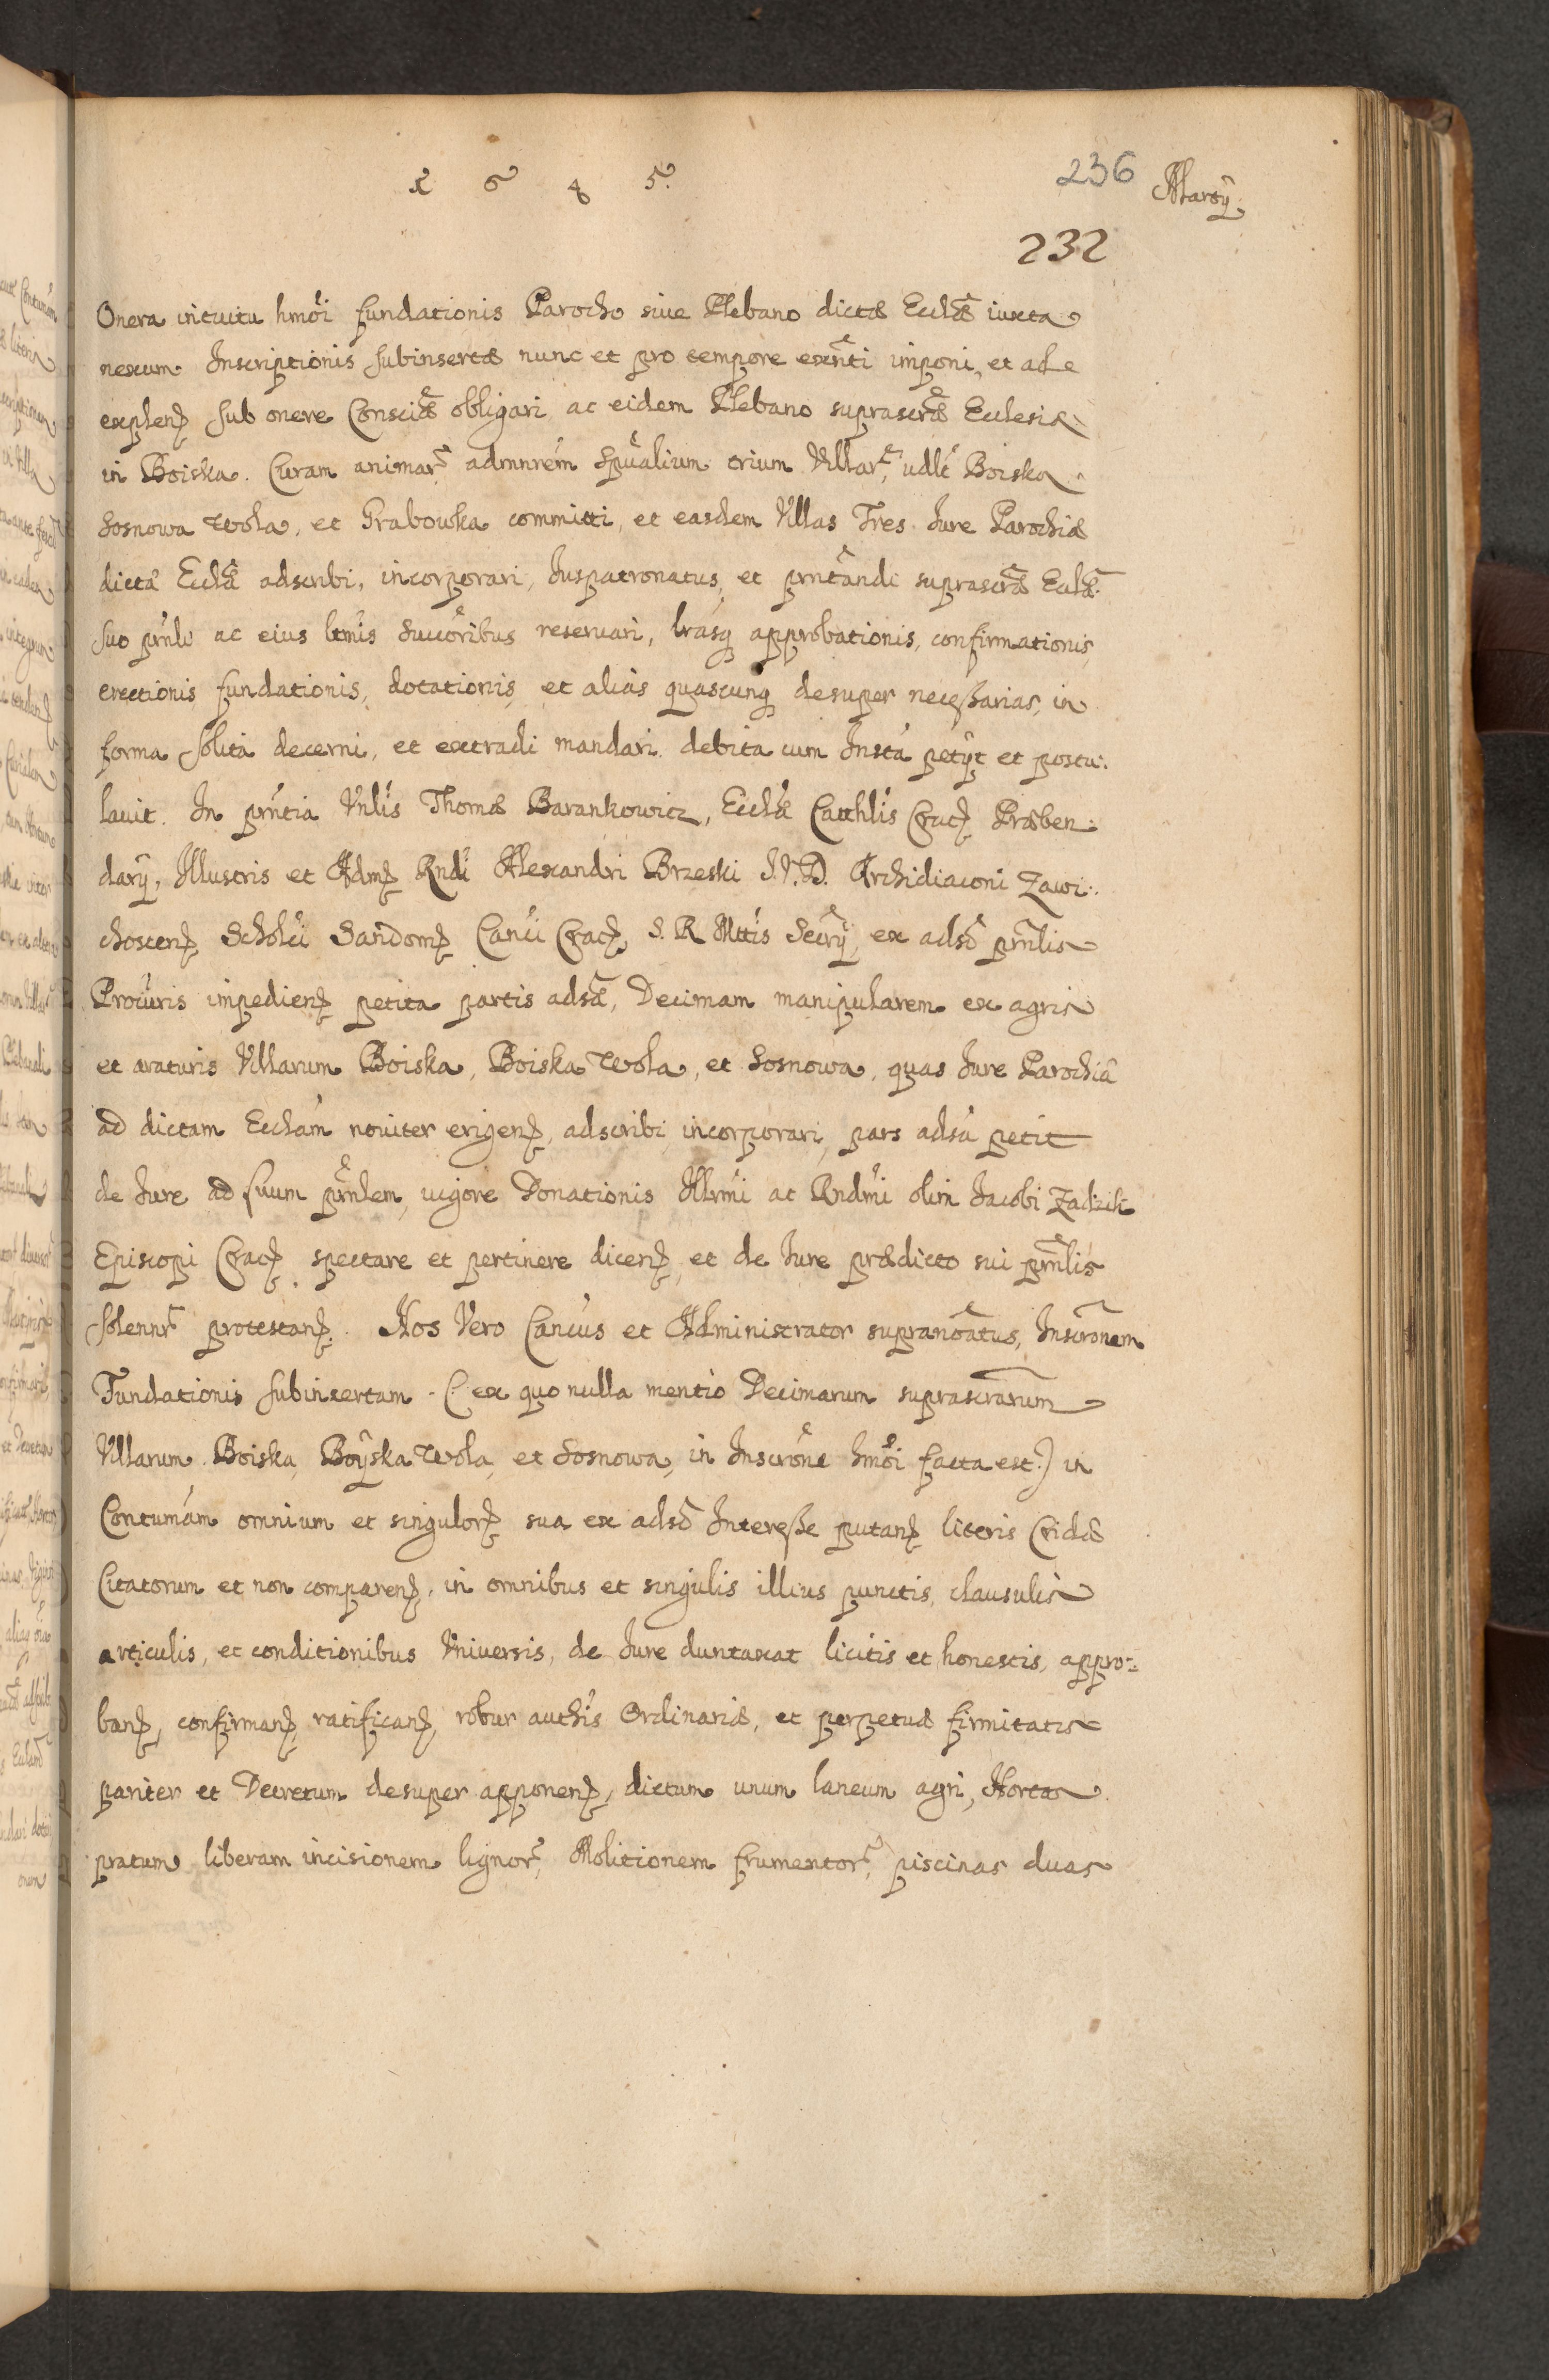 1 6 8 5.
236 Martÿ
232
Onera intuitu hmõi fundationis Parocho siue Plebano dictæ Ecclæ iuxta
nexum Inscriptionis subinsertæ nunc et pro tempore exñti imponi, et ad e
explen̄ sub onere Consciæ obligari ac eidem Plebano suprascræ Ecclesiæ
in Boiska. Curam animar̃ admnrem Spũalium trium Villar̃, udlt Boiska
Sosnowa Wola, et Grabowka committi, et easdem Villas Tres Iure Parochiæ
dictæ Ecclæ adscribi, incorporari, Iuspatronatus, et prñtandi suprascræ Ecclæ
suo prñli ac eius ltmis Succoribus reseruari, lrasq approbationis, confirmationis,
erectionis fundationis, dotationis, et alias quascunq desuper necessarias, in
forma solita decerni, et extradi mandari debita cum Insta petÿt et postu:
lauit. In prñtia Vnlis Thomæ Barankowicz, Ecclæ Cathlis Crac̄ Præben:
darÿ, Illustris et Adm̄ Rndi Alexandri Brzeski I.V.D. Archidiaconi Zawi:
chosten̄ Scholci Sandom̄ Canci Crac̄, S. R. Mttis Secrÿ, ex adso prñlis
Procuris impedien̄ petita partis adsæ, Decimam manipularem ex agris
et araturis Villarum Boiska, Boiska Wola, et Sosnowa, quas Iure Parochiã
ad dictam Ecclam nouiter erigen̄, adscribi, incorporari, pars adsa petit
de Iure ad suum prñlem, uigore Donationis Illrmi ac Rndmi olim Iacobi Zadzik
Episcopi Crac̄ spectare et pertinere dicen̄, et de Iure prædicto sui prñlis
solennr̃ protestan̄. Nos Vero Cancus et Administrator supranoãtus, Inscrõnem
Fundationis subinsertam (: ex quo nulla mentio Decimarum suprascrarum
Villarum Boiska, Boÿska Wola, et Sosnowa, in Inscrõne hmõi facta est:) in
Contumam omnium et singulor̄ sua ex adso Interesse putan̄ literis Cridæ
Citatorum et non comparen̄, in omnibus et singulis illius punctis, clausulis
articulis, et conditionibus Vniuersis, de Iure duntaxat licitis et honestis, appro:
ban̄, confirman̄, ratifican̄, robur authis Ordinariæ, et perpetuæ firmitatis
pariter et Decretum desuper apponen̄, dictum unum laneum agri, Hortos
pratum liberam incisionem lignor̃, Molitionem frumentor̃, piscinas duas